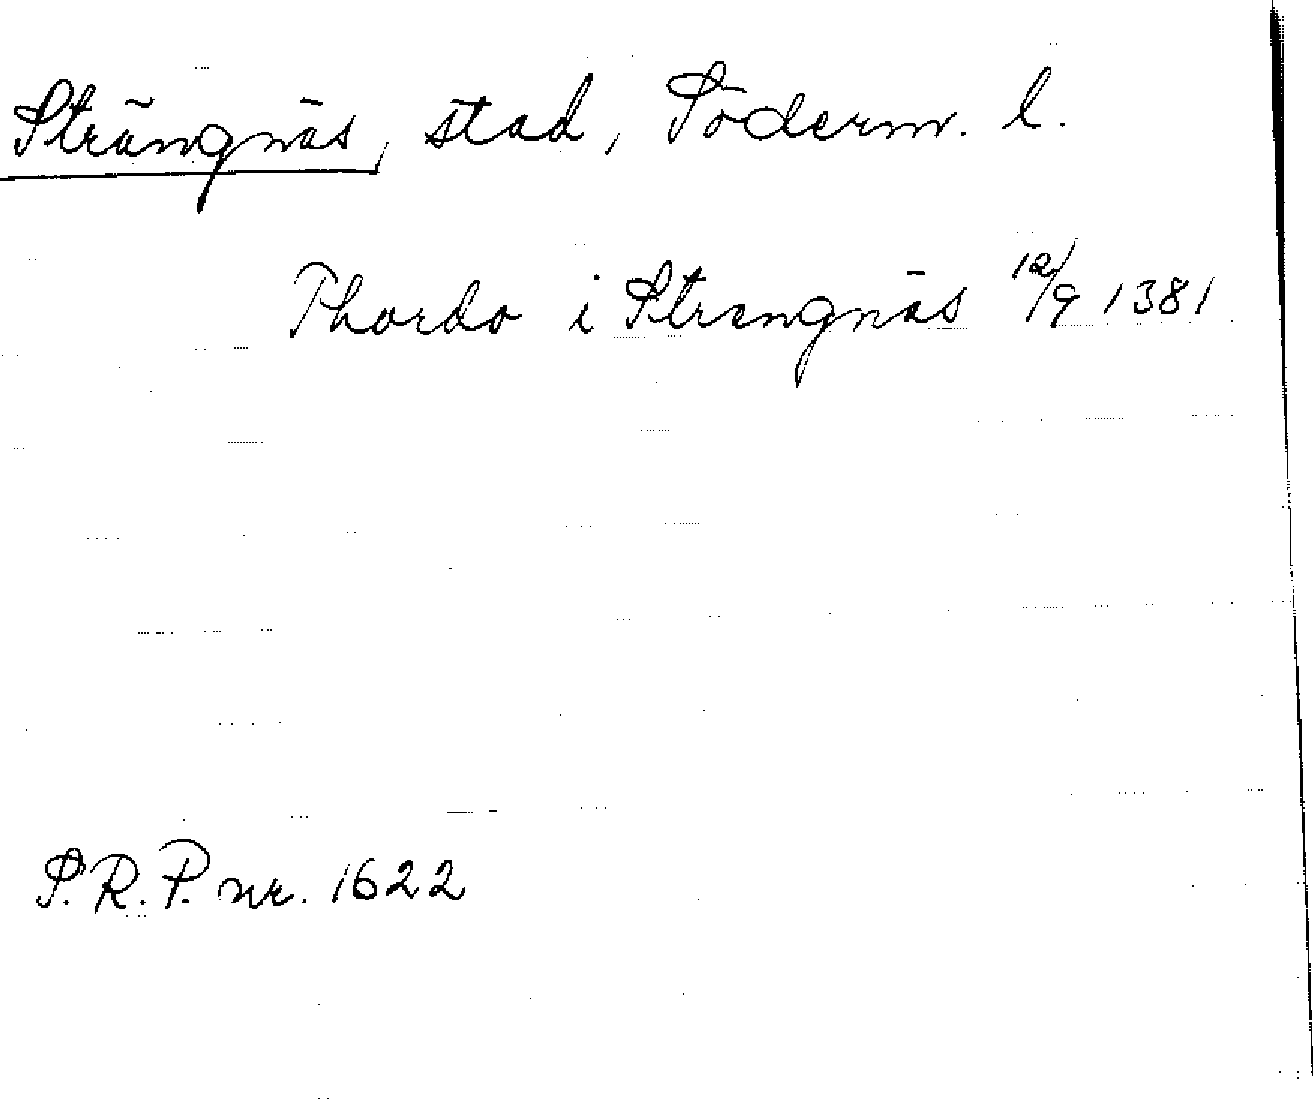 Strängnäs, stad, Söderm. l.
Thordo i Strengnäs 12/9 1381
S.R.P. nr. 1622